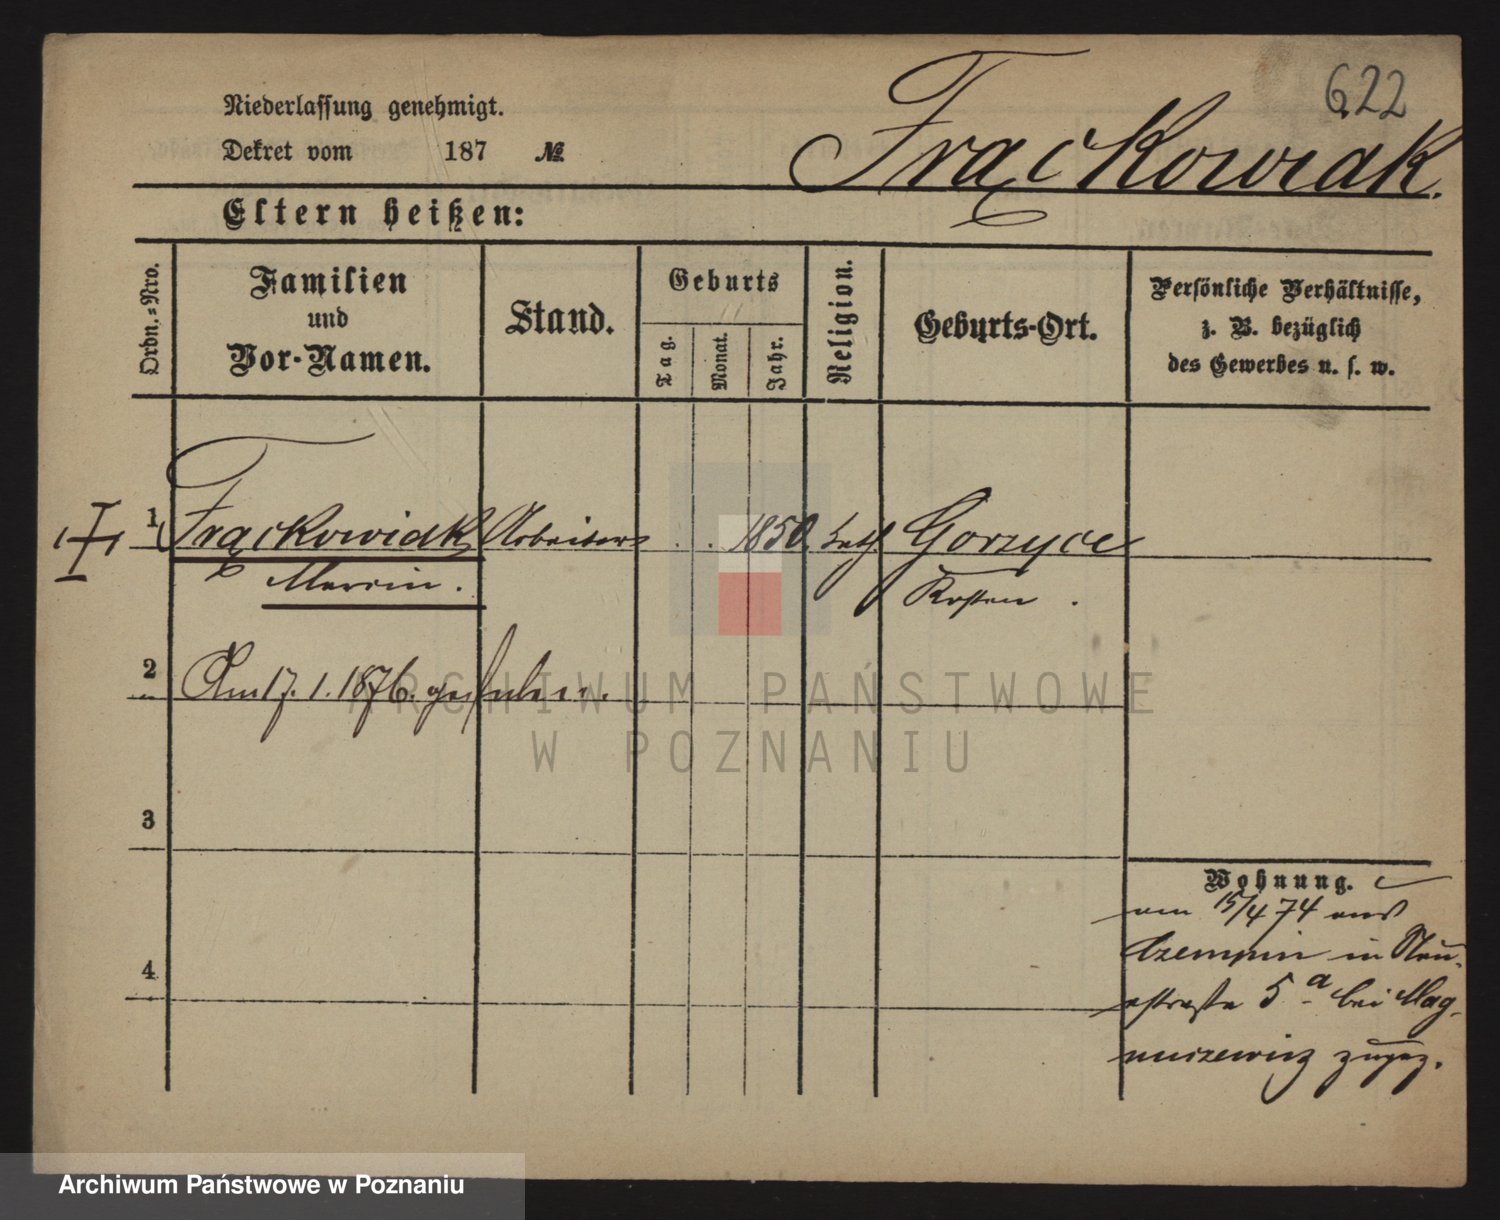 622
Frąckowiak.
Niederlassung genehmigt.
Dekret vom 187 №
Eltern heißen:
Ordn.=Nro.
Familien
und
Vor-Namen.
Stand.
Geburts
Tag.
Monat.
Jahr.
Religion.
Geburts-Ort.
Persönliche Verhältnisse,
z. B. bezüglich
des Gewerbes u. s. w.
1 Frąckowiak Arbeiter . . 1850. kath. Gorzyce
Marcin. Kosten.
2 Am 17. 1. 1876. gestorben.
3
4
Wohnung.
am 15/4 74 aus
Czempin in Neu-
estraße 5 a bei Mag-
nuszewicz zugez.
ARCHIWUM PAŃSTWOWE
W POZNANIU
Archiwum Państwowe w Poznaniu